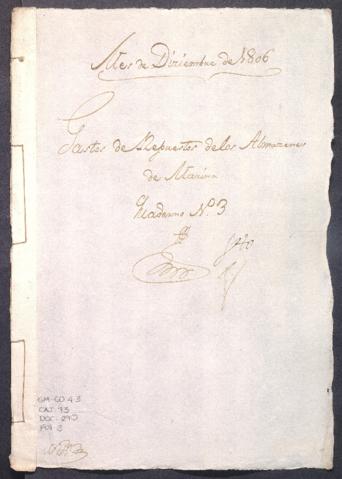 Mes de Diziembre de 1806
Gastos de Repuestos de los Almazenes
de Marina
Quaderno Nº 3
GM-CO 43
CAJ 93
DOC
FOL 3